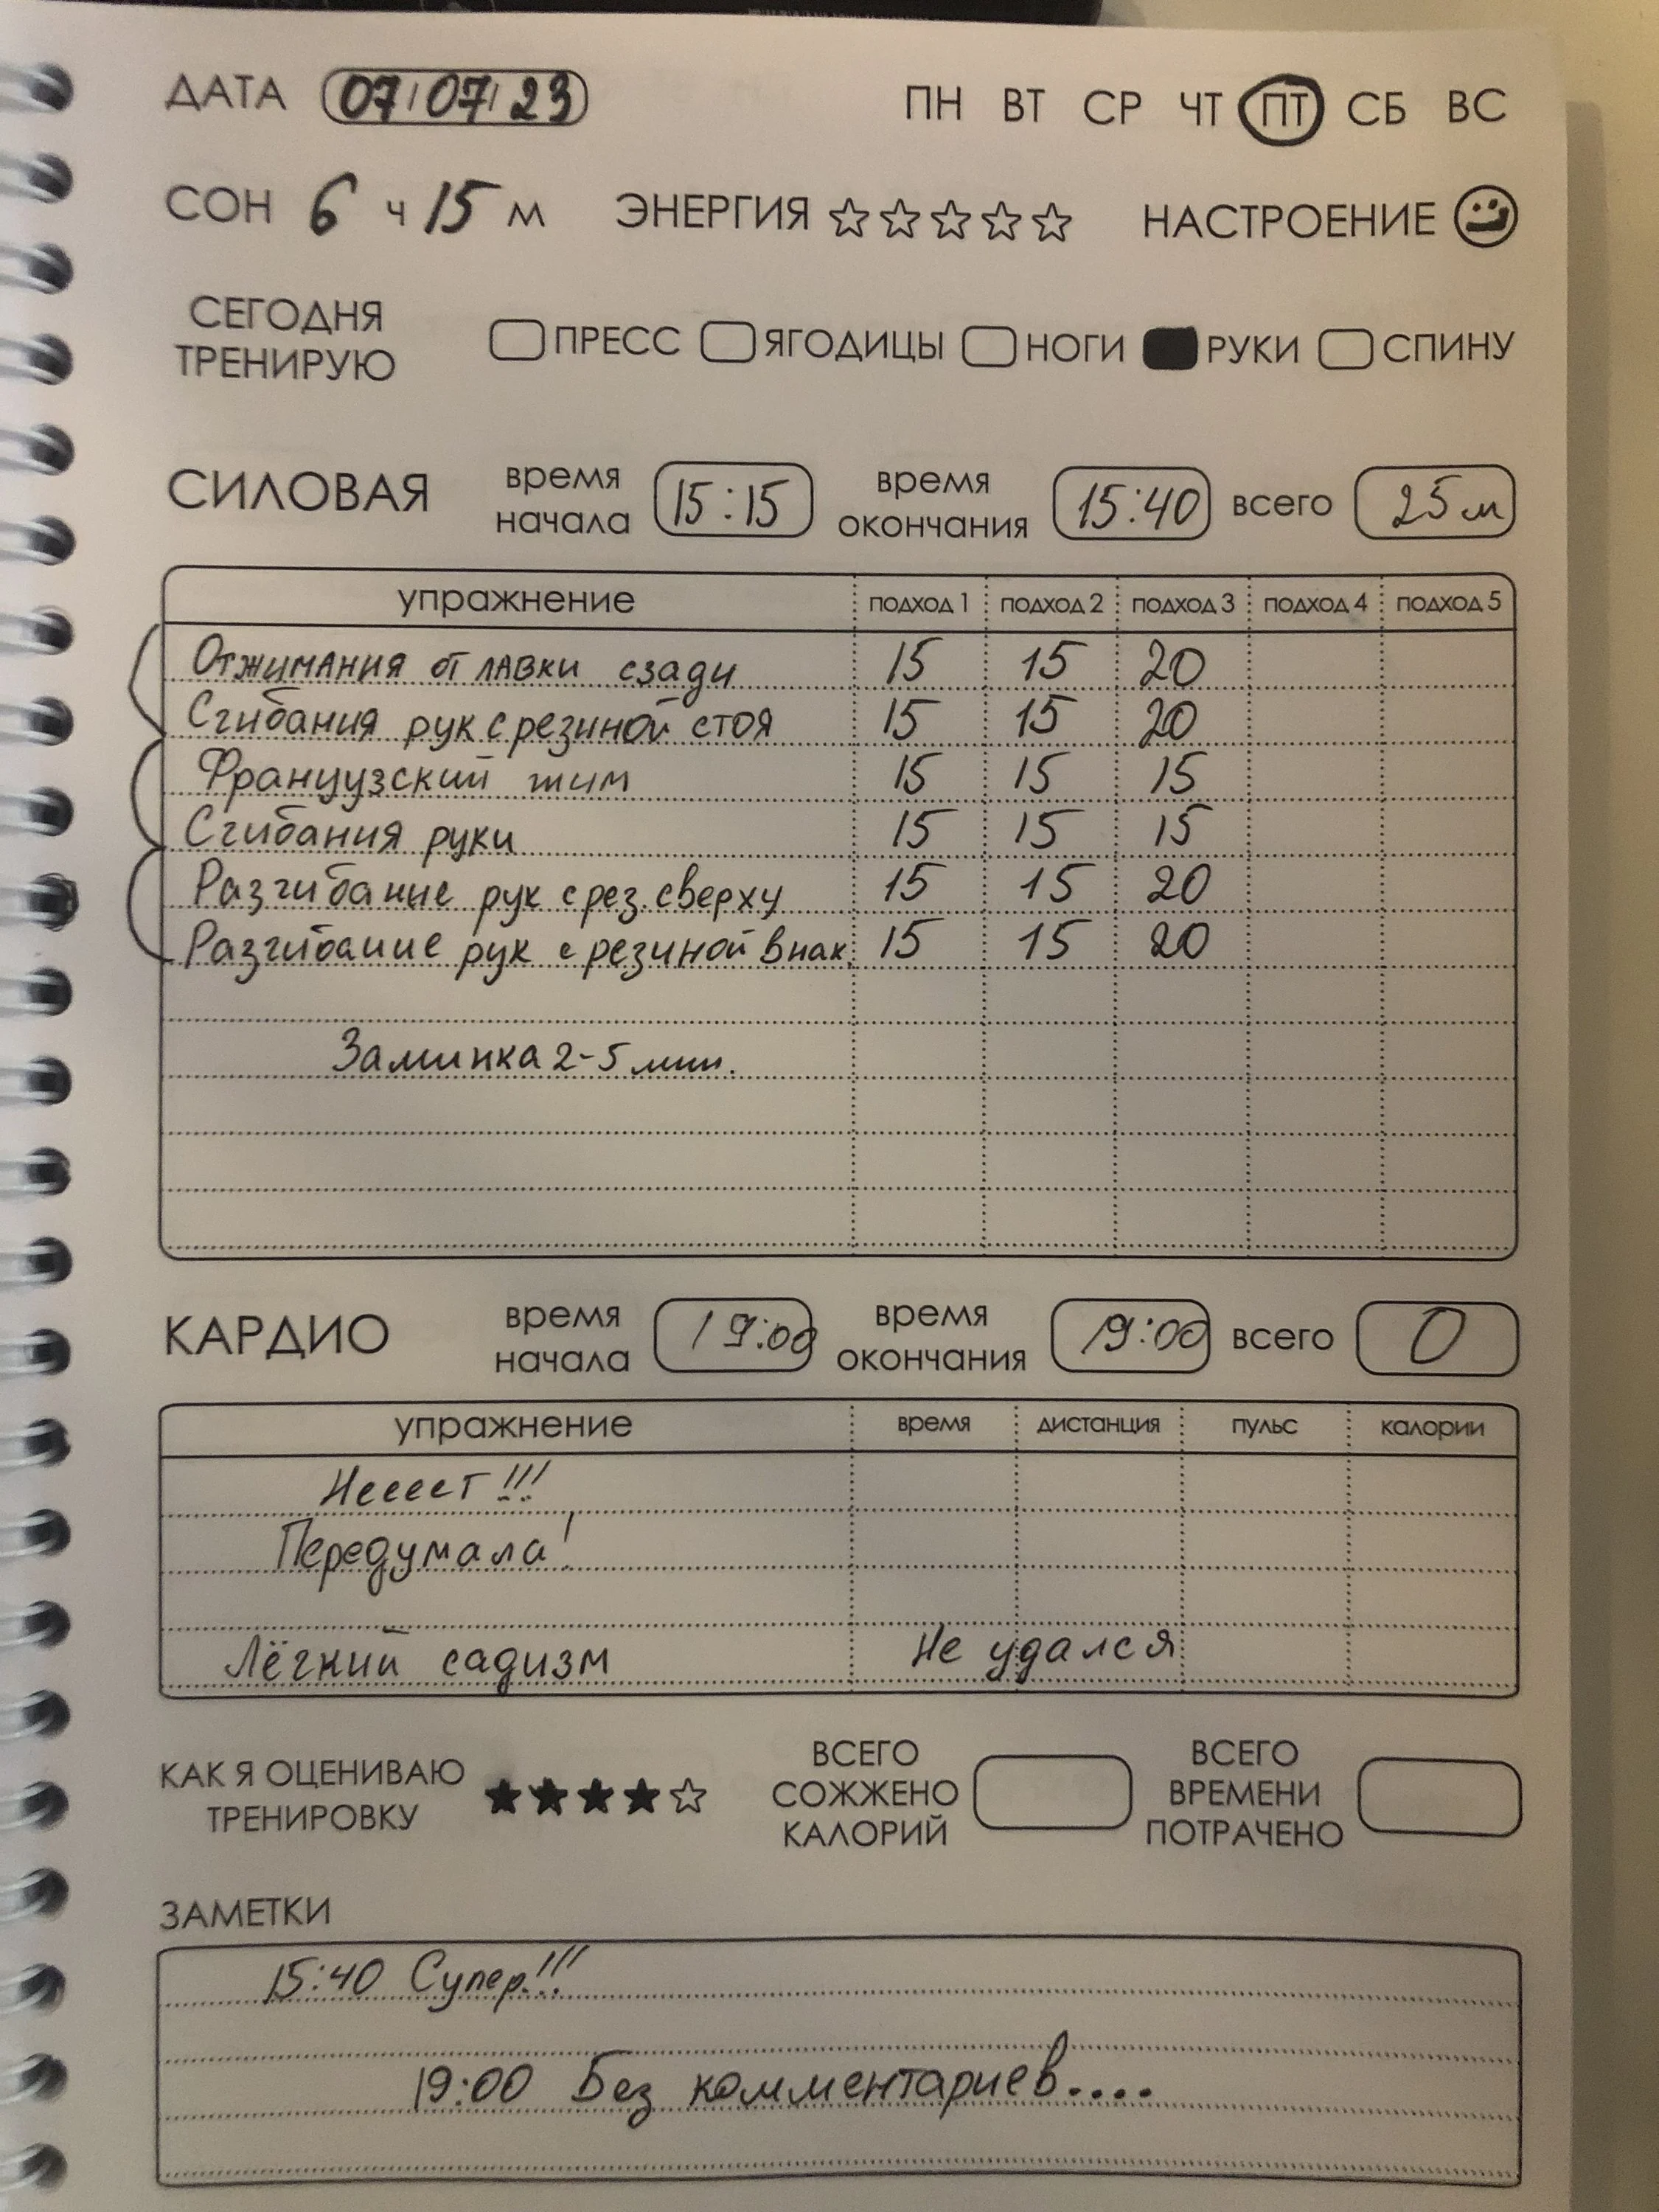 ДАТА 07/07/23 ПН ВТ СР ЧТ ПТ СБ ВС
СОН 6 ч 15 м ЭНЕРГИЯ НАСТРОЕНИЕ
СЕГОДНЯ
ТРЕНИРУЮ ПРЕСС ЯГОДИЦЫ НОГИ РУКИ СПИНУ
СИЛОВАЯ время начала 15:15 время окончания 15:40 всего 25 м
упражнение подход 1 подход 2 подход 3 подход 4 подход 5
Отжимания от лавки сзади 15 15 20
Сгибания рук с резиной стоя 15 15 20
Французский жим 15 15 15
Сгибания руки 15 15 15
Разгибание рук с рез. сверху 15 15 20
Разгибание рук с резиной в нак. 15 15 20
Заминка 2-5 мин.
КАРДИО время начала 19:00 время окончания 19:00 всего 0
упражнение время дистанция пульс калории
Нееест!!!
Передумала!
Лёгкий садизм не удался
КАК Я ОЦЕНИВАЮ ТРЕНИРОВКУ ВСЕГО СОЖЖЕНО КАЛОРИЙ ВСЕГО ВРЕМЕНИ ПОТРАЧЕНО
ЗАМЕТКИ
15:40 Супер!!!
19:00 Без комментариев....